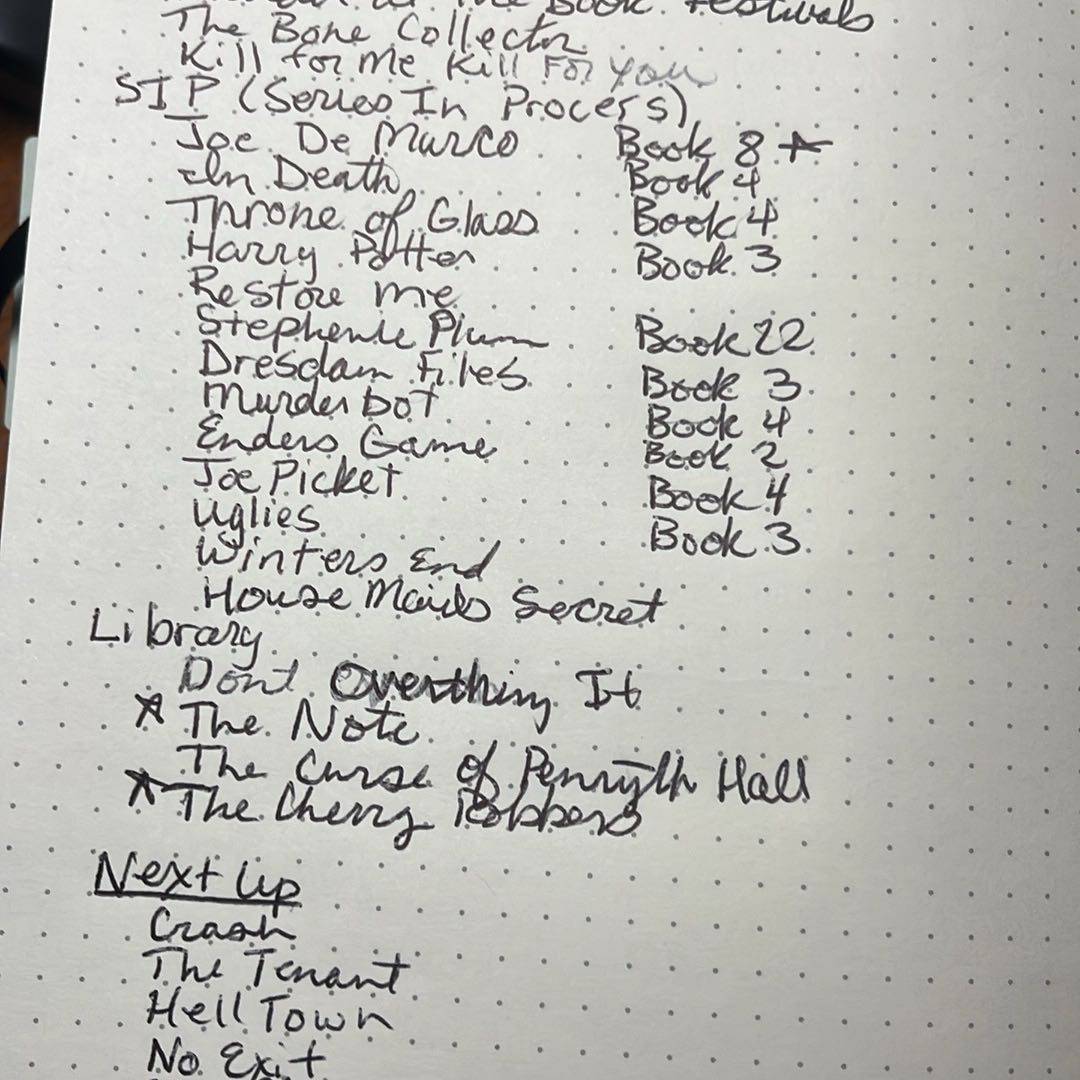 The Book Festivals
The Bone Collector
Kill for me Kill For you
SIP (Series In Procers)
Joe De Marco Book 8 ★
In Death Book 4
Throne of Glass Book 4
Harry Potter Book 3
Restore me
Stephenie Plum Book 22
Dresdam Files Book 3
Murder bot Book 4
Enders Game Book 2
Joe Picket Book 4
Uglies Book 3
Winters End
House Maids Secret
Library
Dont Overthing It
★ The Note
The Curse of Penryth Hall
★ The Cherry Robbers
Next Up
Crash
The Tenant
Hell Town
No Exit